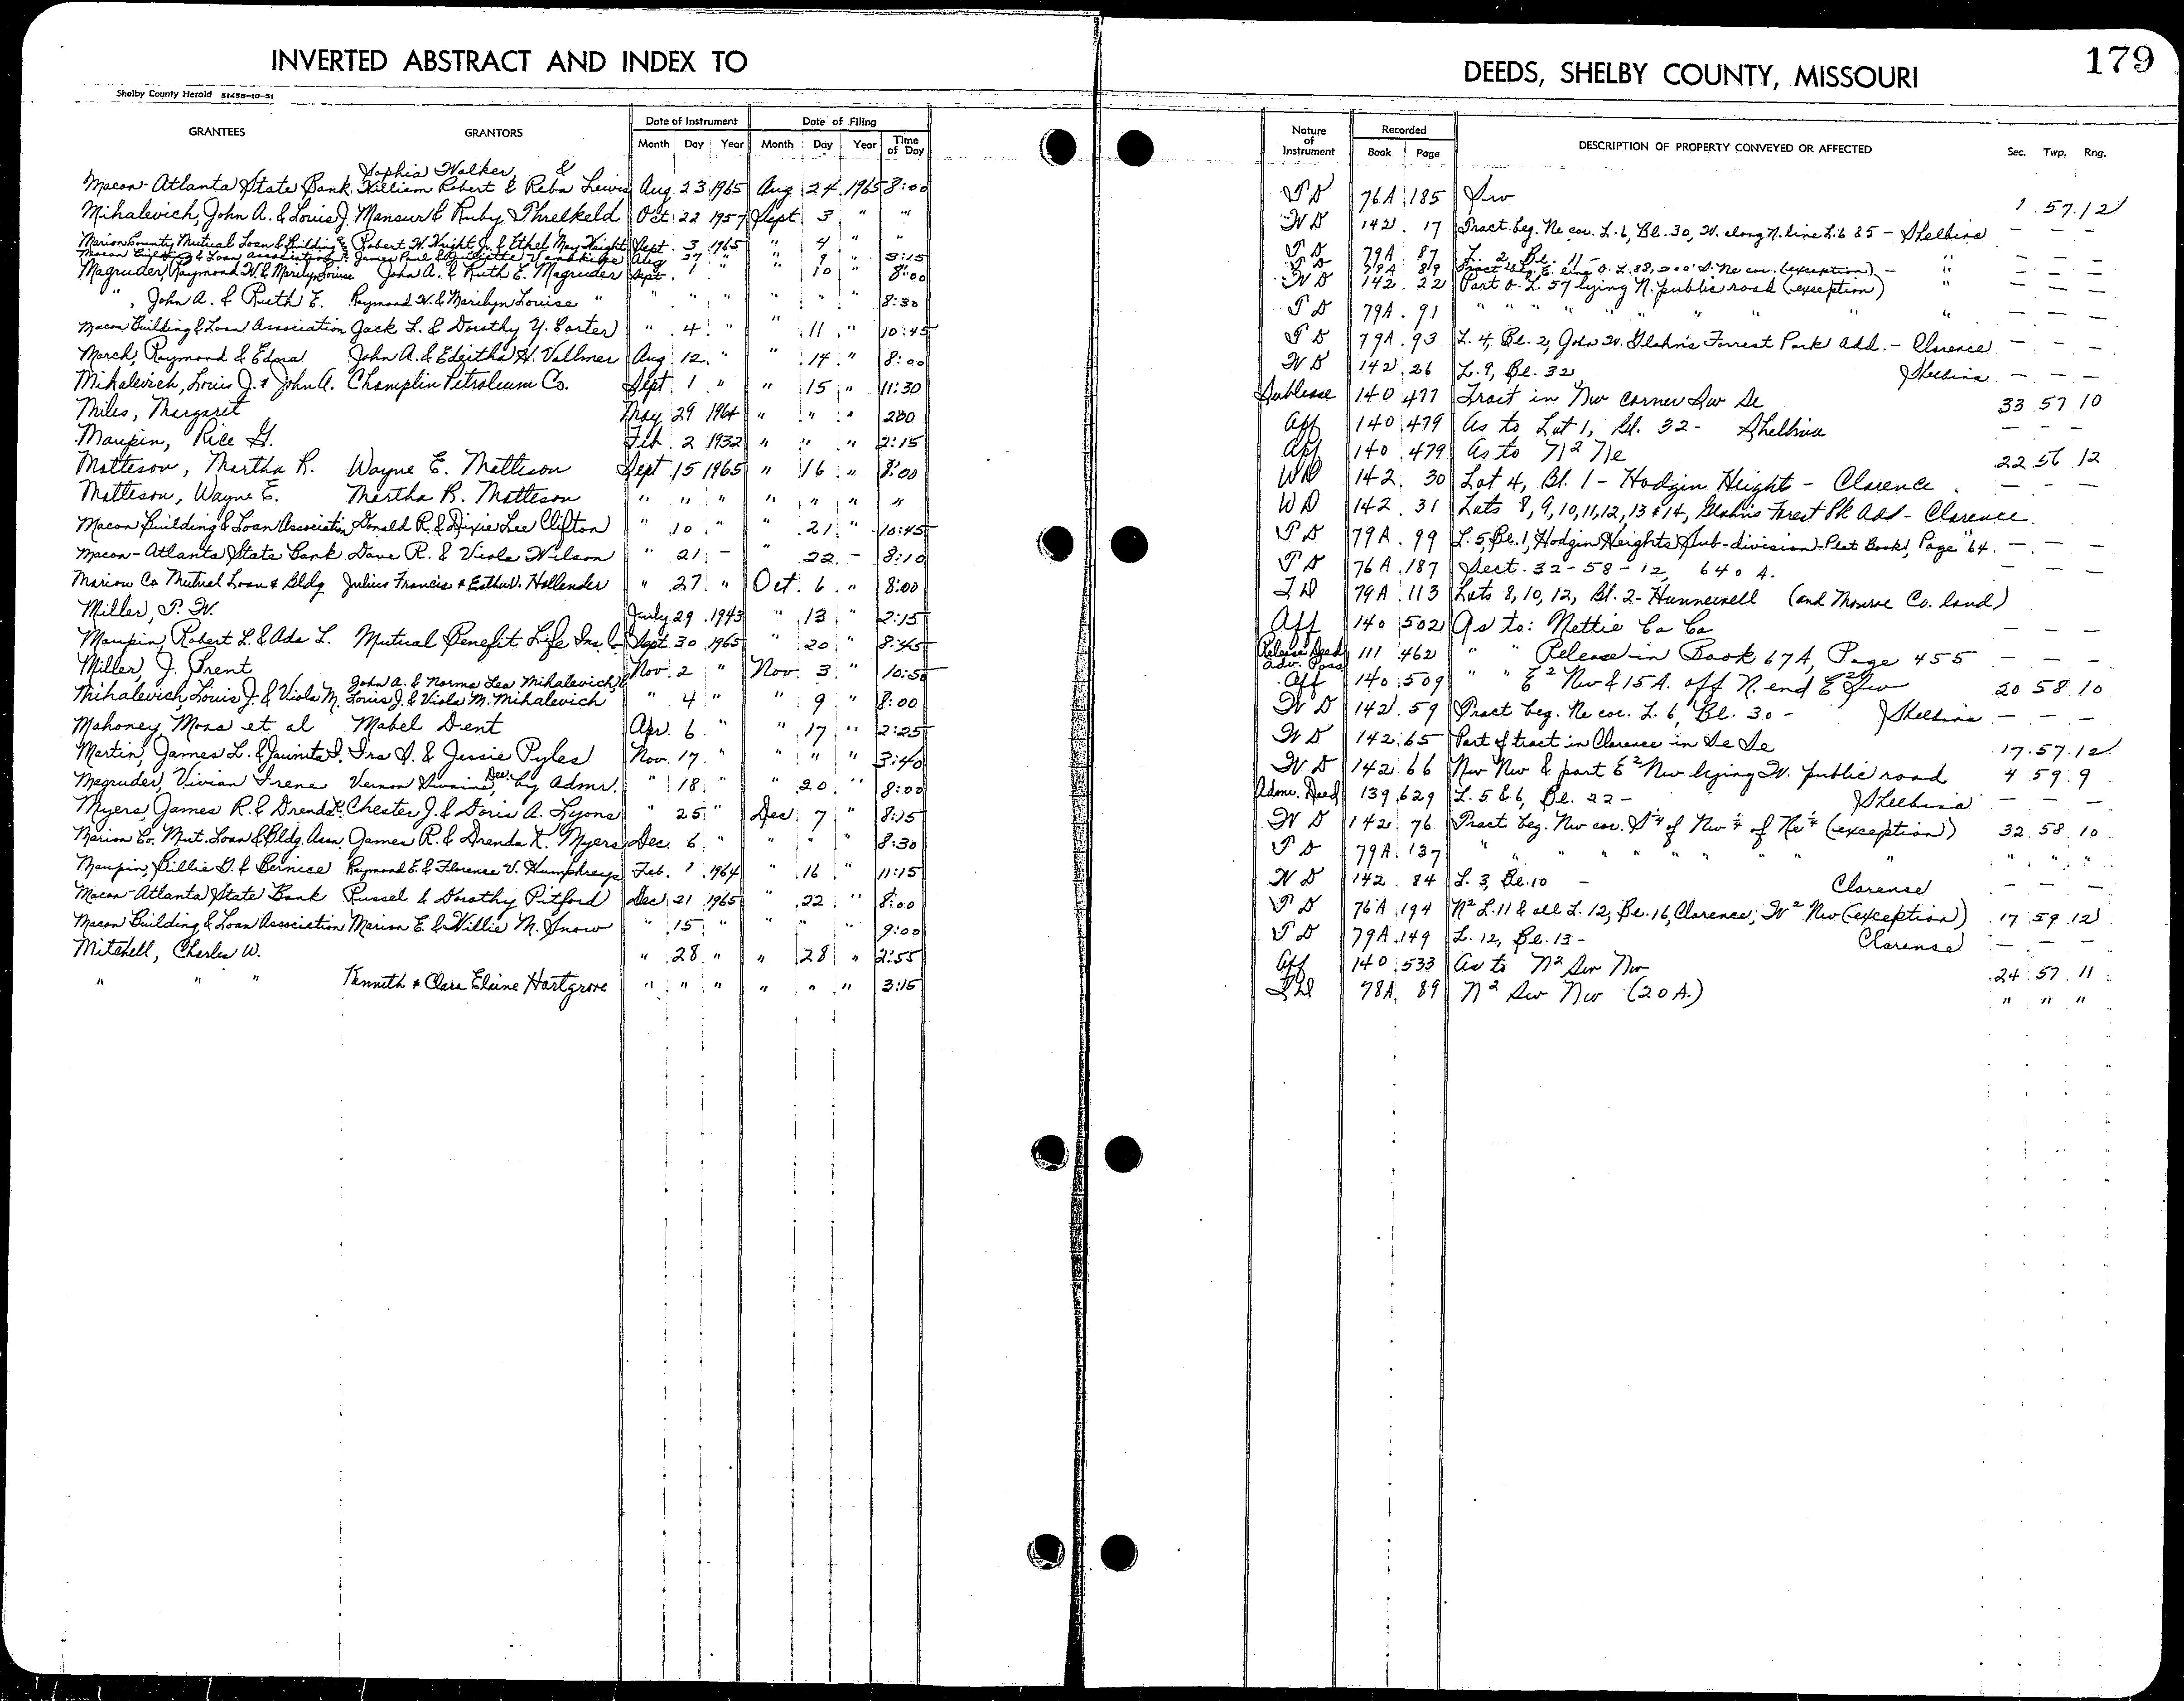 INVERTED ABSTRACT AND INDEX TO
DEEDS, SHELBY COUNTY, MISSOURI
179
Shelby County Herald 51458-10-51
GRANTEES GRANTORS Date of Instrument Month Day Year Date of Filing Month Day Year Time of Day
Nature of Instrument Recorded Book Page DESCRIPTION OF PROPERTY CONVEYED OR AFFECTED Sec. Twp. Rng.
Sophia Walker, &
Macon-Atlanta State Bank William Robert & Reba Lewis Aug 23 1965 Aug 24 1965 8:00 T D 76A 185 Sw 1 57 12
Mihalevich, John A. & Louis J. Mansur & Ruby Threlkeld Oct 22 1957 Sept 3 " " W D 142 17 Tract beg. Ne cor. L. 6, Bl. 30, W. along N. line L. 6 & 5 - Shelbina — — —
Marion County Mutual Loan & Building Robert W. Wright Jr. & Ethel May Wright Sept. 3 1965 " 4 " " T D 79A 87 L. 2, Bl. 11 - " — — —
Macon Building & Loan Association James Paul & Aug 27 " " 9 " 3:15 T D 79A 89 Tract beg. E. line O. L. 88, 200' S. Ne cor. (exception) - " — — —
Magruder, Raymond W. & Marilyn Louise John A. & Ruth E. Magruder Sept. 1 " " 10 " 8:00 W D 142 22 Part O. L. 57 lying N. public road (exception) " — — —
", John A. & Ruth E. Raymond W. & Marilyn Louise " " " " " " " 8:30 T D 79A 91 " " " " " " " " " — — —
Macon Building & Loan Association Jack L. & Dorothy Y. Carter " 4 " " 11 " 10:45 T D 79A 93 L. 4, Bl. 2, John W. Glahn's Forrest Park Add. - Clarence — — —
March, Raymond & Edna John A. & Edeitha H. Vollmer Aug 12 " " 14 " 8:00 W D 142 26 L. 9, Bl. 32 Shelbina — — —
Mihalevich, Louis J. & John A. Champlin Petroleum Co. Sept. 1 " " 15 " 11:30 Sublease 140 477 Tract in Nw corner Sw Se 33 57 10
Miles, Margaret May 29 1964 " " " 2:00 Aff 140 479 As to Lot 1, Bl. 32 - Shelbina — — —
Maupin, Rice G. Feb. 2 1932 " " " 2:15 Aff 140 479 As to N2 Ne 22 56 12
Matteson, Martha R. Wayne E. Matteson Sept 15 1965 " 16 " 8:00 WD 142 30 Lot 4, Bl. 1 - Hodgin Height - Clarence — — —
Matteson, Wayne E. Martha R. Matteson " " " " " " " WD 142 31 Lots 8, 9, 10, 11, 12, 13 & 14, Glahn's Forest Pk Add - Clarence.
Macon Building & Loan Association Donald R. & Dixie Lee Clifton " 10 " " 21 " 10:45 T D 79A 99 L. 5, Bl. 1, Hodgin Heights Sub-division - Plat Book 1, Page 64 — — —
Macon-Atlanta State Bank Dave R. & Viola Wilson " 21 - " 22 - 8:10 T D 76A 187 Sect. 32-58-12, 640 A. — — —
Marion Co Mutual Loan & Bldg Julius Francis & Esther V. Hollender " 27 " Oct. 6 " 8:00 T D 79A 113 Lots 8, 10, 12, Bl. 2 - Hunnewell (and Monroe Co. land)
Miller, P. W. July 29 1943 " 13 " 2:15 Aff 140 502 As to: Nettie Ca Ca — — —
Maupin, Robert L. & Ada L. Mutual Benefit Life Ins Co Sept. 30 1965 " 20 " 8:45 Release Deed 111 462 " " Release in Book 67A, Page 455 — — —
Miller, J. Trent Nov. 2 " Nov. 3 " 10:50 Adv. Poss Aff 140 509 " " E2 Nw & 15 A. off N. end E2 Sw 20 58 10
John A. & Norma Lea Mihalevich &
Mihalevich, Louis J. & Viola M. Louis J. & Viola M. Mihalevich " 4 " " 9 " 8:00 W D 142 59 Tract beg. Ne cor. L. 6, Bl. 30 - Shelbina — — —
Mahoney, Mona et al Mabel Dent Apr. 6 " " 17 " 2:25 W D 142 65 Part of tract in Clarence in Se Se 17 57 12
Martin, James L. & Juanita I. Ira D. & Jessie Pyles Nov. 17 " " " " 3:40 W D 142 66 Nw Nw & part E2 Nw lying W. public road 4 59 9
Magruder, Vivian Irene Vernon Dwaine, Dec. by Admr. " 18 " " 20 " 8:00 Admr. Deed 139 629 L. 5 & 6, Bl. 22 - Shelbina — — —
Myers, James R. & Drenda K. Chester J. & Doris A. Lyons " 25 " Dec. 7 " 8:15 W D 142 76 Tract beg. Nw cor. S¼ of Nw¼ of Ne¼ (exception) 32 58 10
Marion Co. Mut. Loan & Bldg. Assn. James R. & Drenda K. Myers Dec. 6 " " " " 8:30 T D 79A 137 " " " " " " " " " " "
Maupin, Billie D. & Bernice Raymond E. & Florence V. Humphreys Feb. 1 1964 " 16 " 11:15 W D 142 84 L. 3, Bl. 10 - Clarence — — —
Macon-Atlanta State Bank Russel & Dorothy Pitford Dec 21 1965 " 22 " 8:00 T D 76A 194 N2 L. 11 & all L. 12, Bl. 16, Clarence; W2 Nw (exception) 17 59 12
Macon Building & Loan Association Marion E. & Willie M. Snow " 15 " " " " 9:00 T D 79A 149 L. 12, Bl. 13 - Clarence — — —
Mitchell, Charles W. " 28 " " 28 " 2:55 Aff 140 533 As to N2 Sw Nw 24 57 11
" " " Kenneth & Clara Elaine Hartgrove " " " " " " 3:15 78A 89 N2 Sw Nw (20 A.) " " "